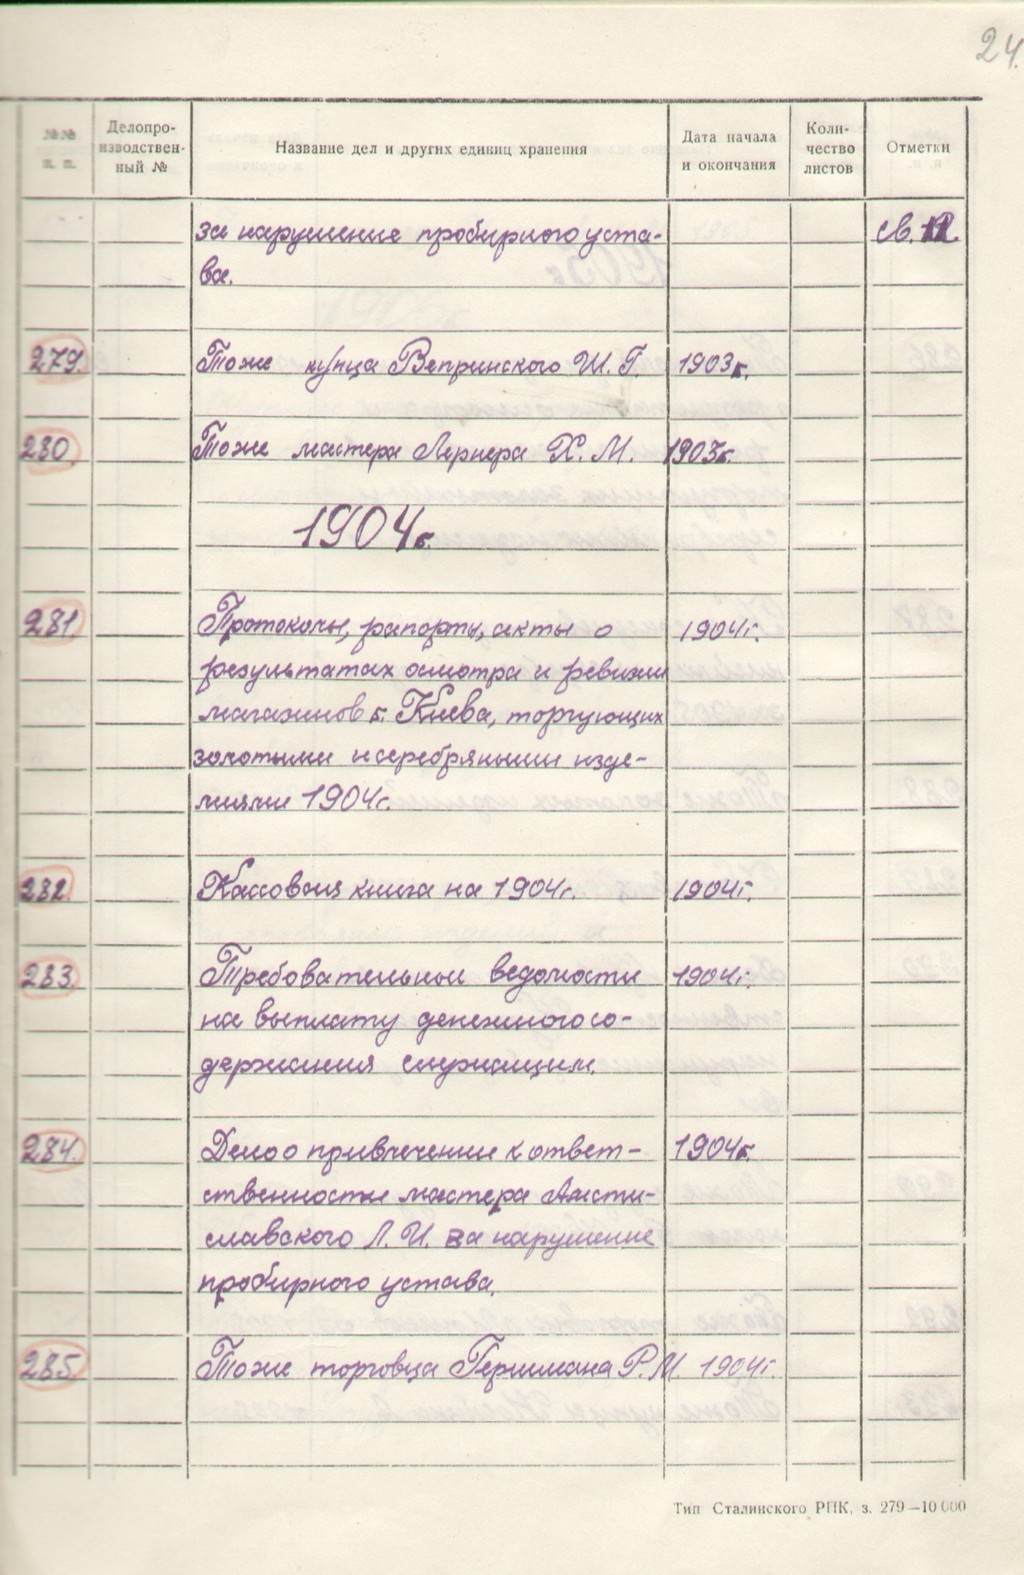 24.
№№ п. п.
Делопро-
изводствен-
ный №
Название дел и других единиц хранения
Дата начала
и окончания
Коли-
чество
листов
Отметки
за нарушение пробирного уста-
ва.
св. 12.
279. Тоже купца Вепринского Ш. Г. 1903г.
280. Тоже мастера Лернера Х. М. 1903г.
1904г.
281. Протоколы, рапорты, акты о 1904г.
результатах осмотра и ревизии
магазинов г. Киева, торгующих
золотыми и серебряными изде-
лиями 1904г.
282. Кассовая книга на 1904г. 1904г.
283. Требовательные ведомости 1904г.
на выплату денежного со-
держания служащим.
284. Дело о привлечении к ответ- 1904г.
ственности мастера Амсти-
славского Л. И. за нарушение
пробирного устава.
285. Тоже торговца Гершмана Р. М. 1904г.
Тип Сталинского РПК, з. 279—10 000